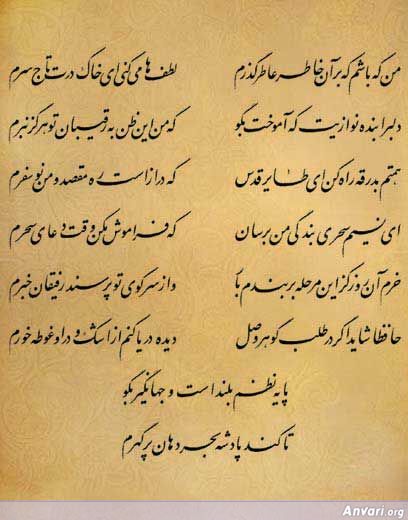 من که باشم که بر آن خاطر عاطر گذرم لطف‌ها می‌کنی ای خاک درت تاج سرم
دلبرا بنده نوازیت که آموخت بگو که من این ظن به رقیبان تو هرگز نبرم
همتم بدرقه راه کن ای طایر قدس که دراز است ره مقصد و من نوسفرم
ای نسیم سحری بندگی من برسان که فراموش مکن وقت دعای سحرم
خرم آن روز کز این مرحله بربندم بار و از سر کوی تو پرسند رفیقان خبرم
حافظا شاید اگر در طلب گوهر وصل دیده دریا کنم از اشک و در او غوطه خورم
پایه نظم بلند است و جهانگیر بگو
تا کند پادشه بحر دهان پرگهرم
Anvari.org